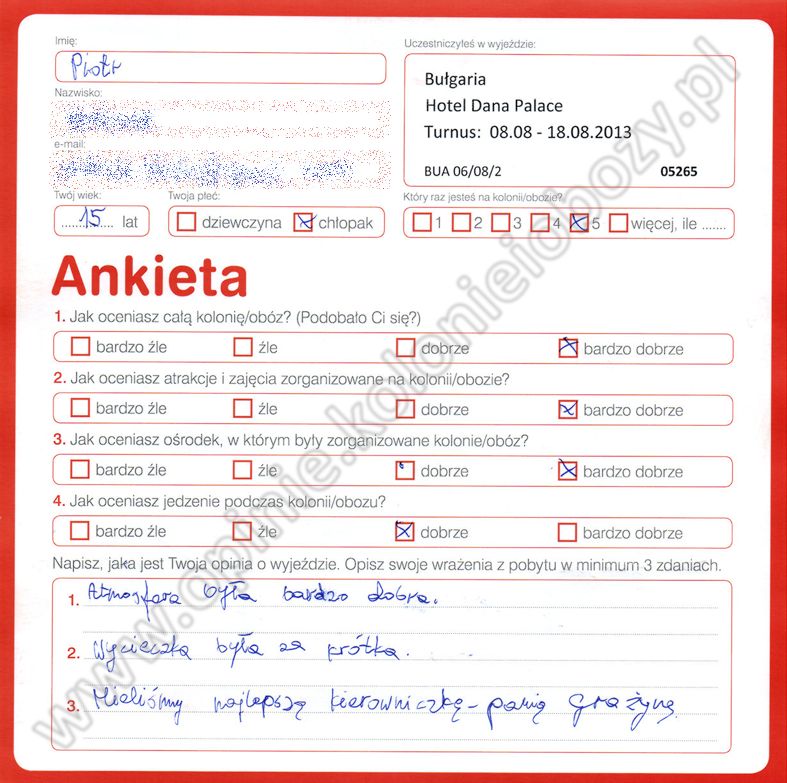 Imię:
Piotr
Nazwisko:
e-mail:
Twój wiek:
15 lat
Twoja płeć:
dziewczyna chłopak
Uczestniczyłeś w wyjeździe:
Bułgaria
Hotel Dana Palace
Turnus: 08.08 - 18.08.2013
BUA 06/08/2 05265
Który raz jesteś na kolonii/obozie?
1 2 3 4 5 więcej, ile .......
Ankieta
1. Jak oceniasz całą kolonię/obóz? (Podobało Ci się?)
bardzo źle źle dobrze bardzo dobrze
2. Jak oceniasz atrakcje i zajęcia zorganizowane na kolonii/obozie?
bardzo źle źle dobrze bardzo dobrze
3. Jak oceniasz ośrodek, w którym były zorganizowane kolonie/obóz?
bardzo źle źle dobrze bardzo dobrze
4. Jak oceniasz jedzenie podczas kolonii/obozu?
bardzo źle źle dobrze bardzo dobrze
Napisz, jaka jest Twoja opinia o wyjeździe. Opisz swoje wrażenia z pobytu w minimum 3 zdaniach.
1. Atmosfera była bardzo dobra.
2. Wycieczka była za krótka.
3. Mieliśmy najlepszą kierowniczkę - panią Grażynę
www.opinie.kolonieiobozy.pl